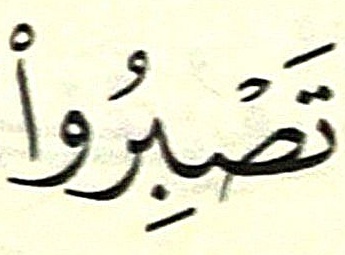 تَصْبِرُوا۟